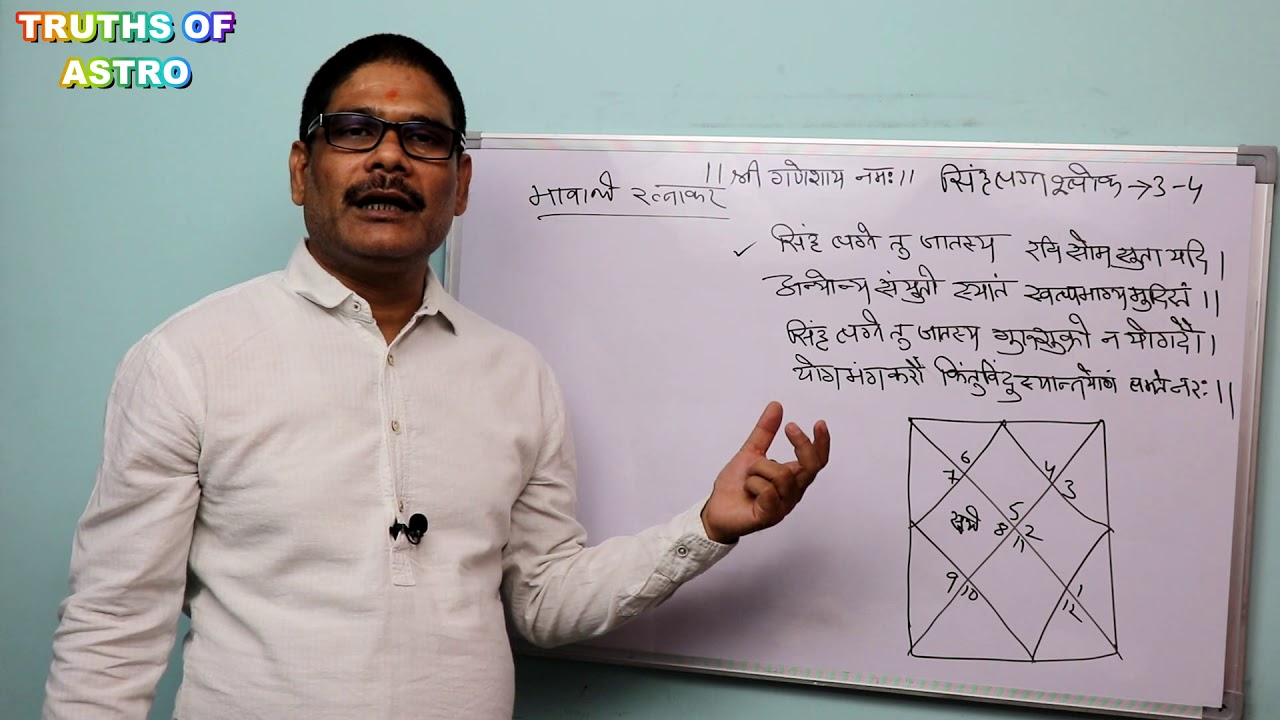 TRUTHS OF
ASTRO
।। श्री गणेशाय नमः।।
भावार्थ रत्नाकर
सिंहलग्न श्लोक → 3-4
✓ सिंह लग्ने तु जातस्य रवि सोम सुता यदि।
अन्योन्य संयुतौ स्यातं स्वल्पभाग्य
सिंह लग्ने तु जातस्य न योगदौ।।
योगभंगकरौ किंतु नरः।।
6
7
4
3
5
8
2
11
9
10
1
12